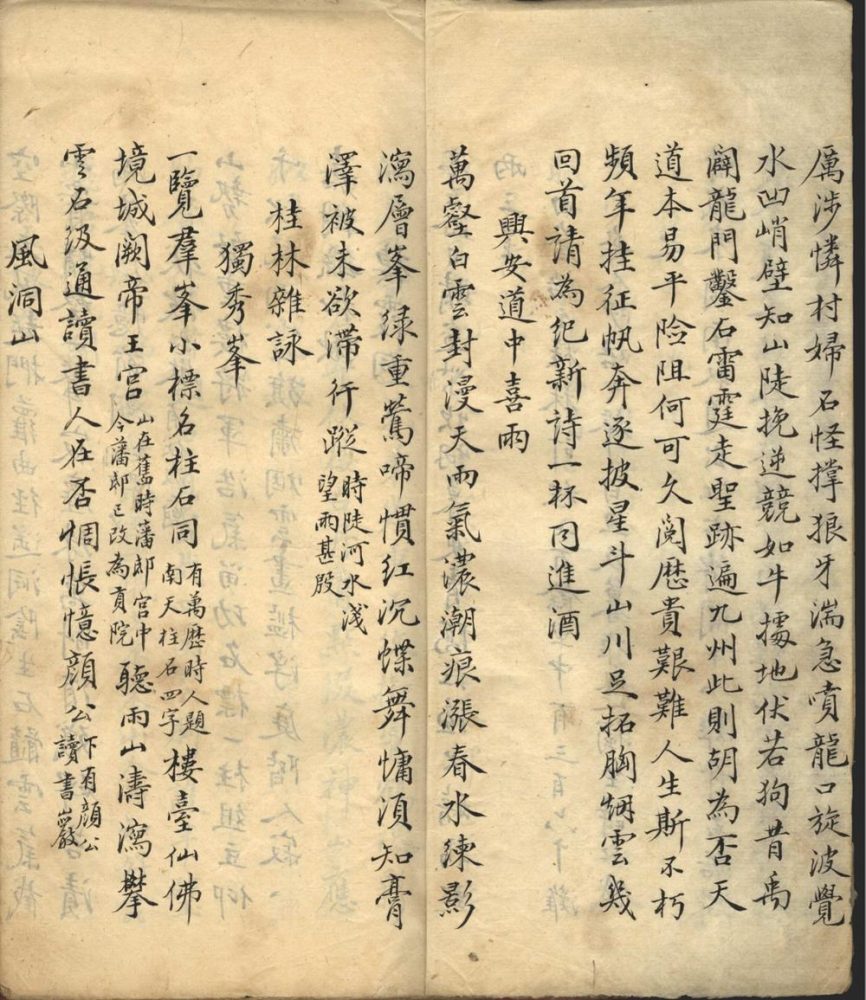 厲涉憐村婦石怪撐狼牙湍急噴龍口旋波覺
水凹峭壁知山陡挽逆競如牛據地伏若狗昔禹
闢龍門鑿石雷霆走聖跡遍九州此則胡為否天
道本易平險阻何可久閱歷貴艱難人生斯不朽
頻年挂征帆奔逐披星斗山川足拓胸烟雲幾
回首請為紀新詩一杯同進酒
興安道中喜雨
萬壑白雲封漫天雨氣濃潮痕漲春水練影
瀉層峯綠重鶯啼慣紅沉蝶舞慵須知膏
澤被未欲滯行蹤時陡河水淺
望雨甚殷
桂林雜詠
獨秀峯
一覽羣峯小標名柱石同有萬歷時人題
南天柱石四字樓臺仙佛
境城闕帝王宮山在舊時藩邸宮中
今藩邸已改為貢院聽雨山濤瀉攀
雲石級通讀書人在否惆悵憶顏公下有顏公
讀書巖
風洞山